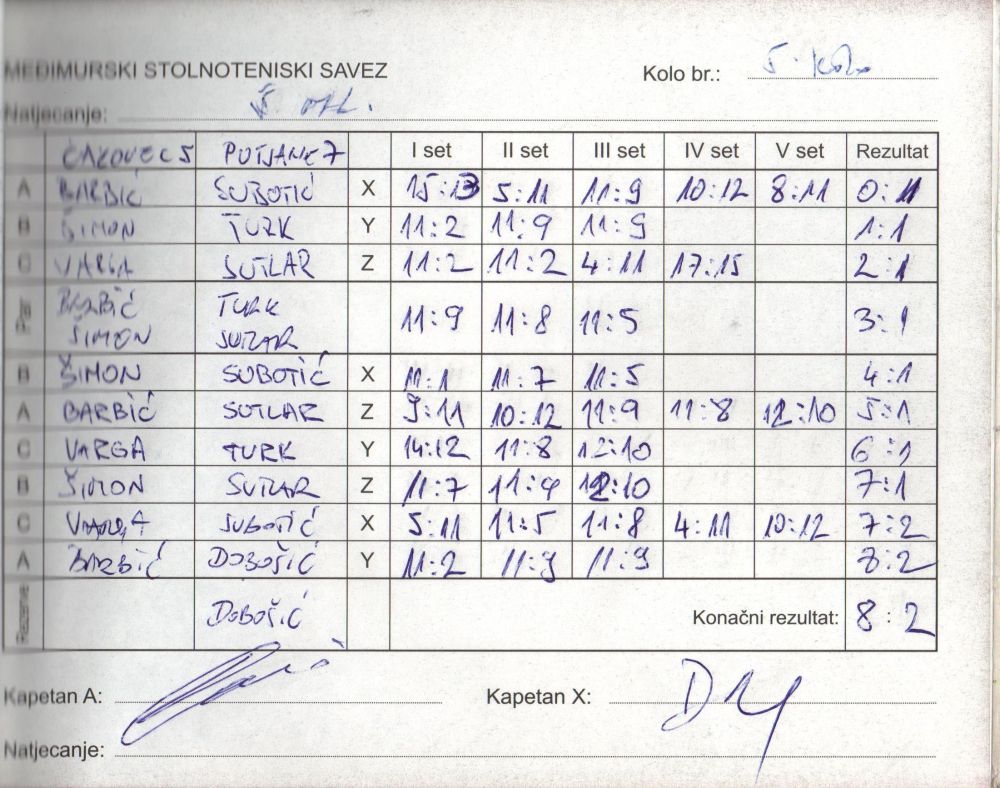 MEĐIMURSKI STOLNOTENISKI SAVEZ
Kolo br.: 5. kolo
Natjecanje:
ČAKOVEC 5 PUŠĆANE 7 I set II set III set IV set V set Rezultat
A BARBIĆ SUBOTIĆ X 15:13 5:11 11:9 10:12 8:11 0:1
B ŠIMON TURK Y 11:2 11:9 11:9 1:1
C VARGA SUTLAR Z 11:2 11:2 4:11 17:15 2:1
Par BARBIĆ TURK 11:9 11:8 11:5 3:1
ŠIMON SUTLAR
B ŠIMON SUBOTIĆ X 11:1 11:7 11:5 4:1
A BARBIĆ SUTLAR Z 9:11 10:12 11:9 11:8 12:10 5:1
C VARGA TURK Y 14:12 11:8 12:10 6:1
B ŠIMON SUTLAR Z 11:7 11:9 12:10 7:1
C VARGA SUBOTIĆ X 5:11 11:5 11:8 4:11 10:12 7:2
A BARBIĆ DOBOŠIĆ Y 11:2 11:9 11:9 8:2
Rezerve DOBOŠIĆ Konačni rezultat: 8:2
Kapetan A: Kapetan X:
Natjecanje: